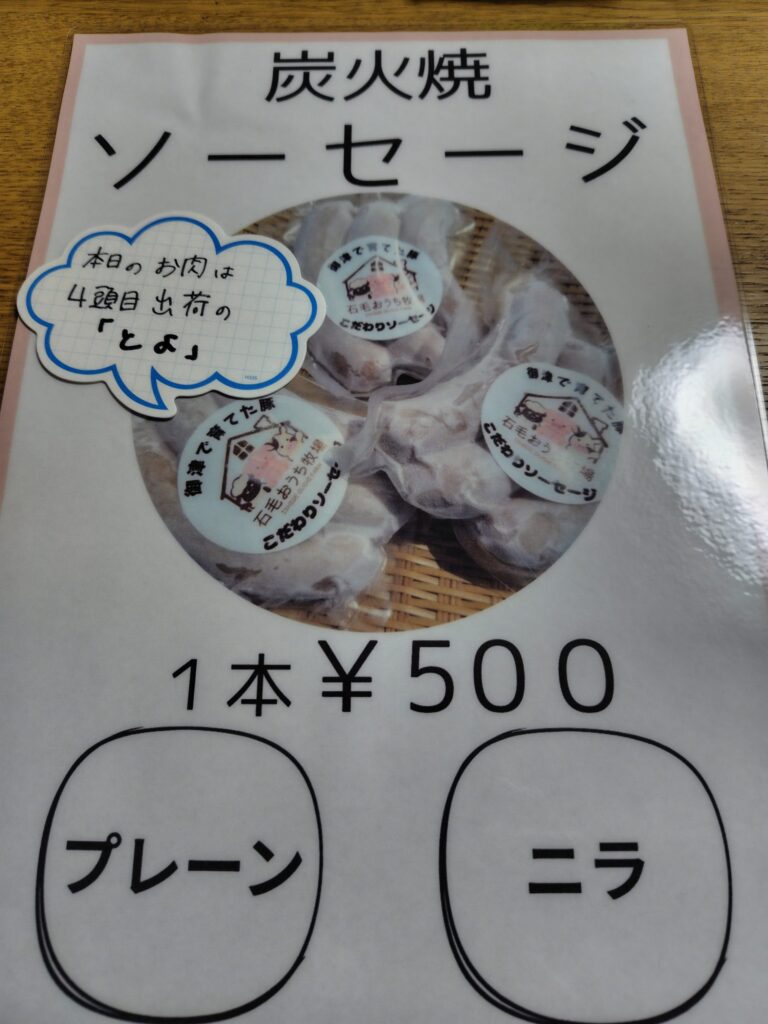 炭火焼
ソーセージ
本日のお肉は
4頭目出荷の
「とよ」
御津で育てた豚
石毛おうち牧場
こだわりソーセージ
御津で育てた豚
石毛おうち牧場
こだわりソーセージ
御津で育てた豚
石毛おうち牧場
こだわりソーセージ
1本¥500
プレーン
ニラ